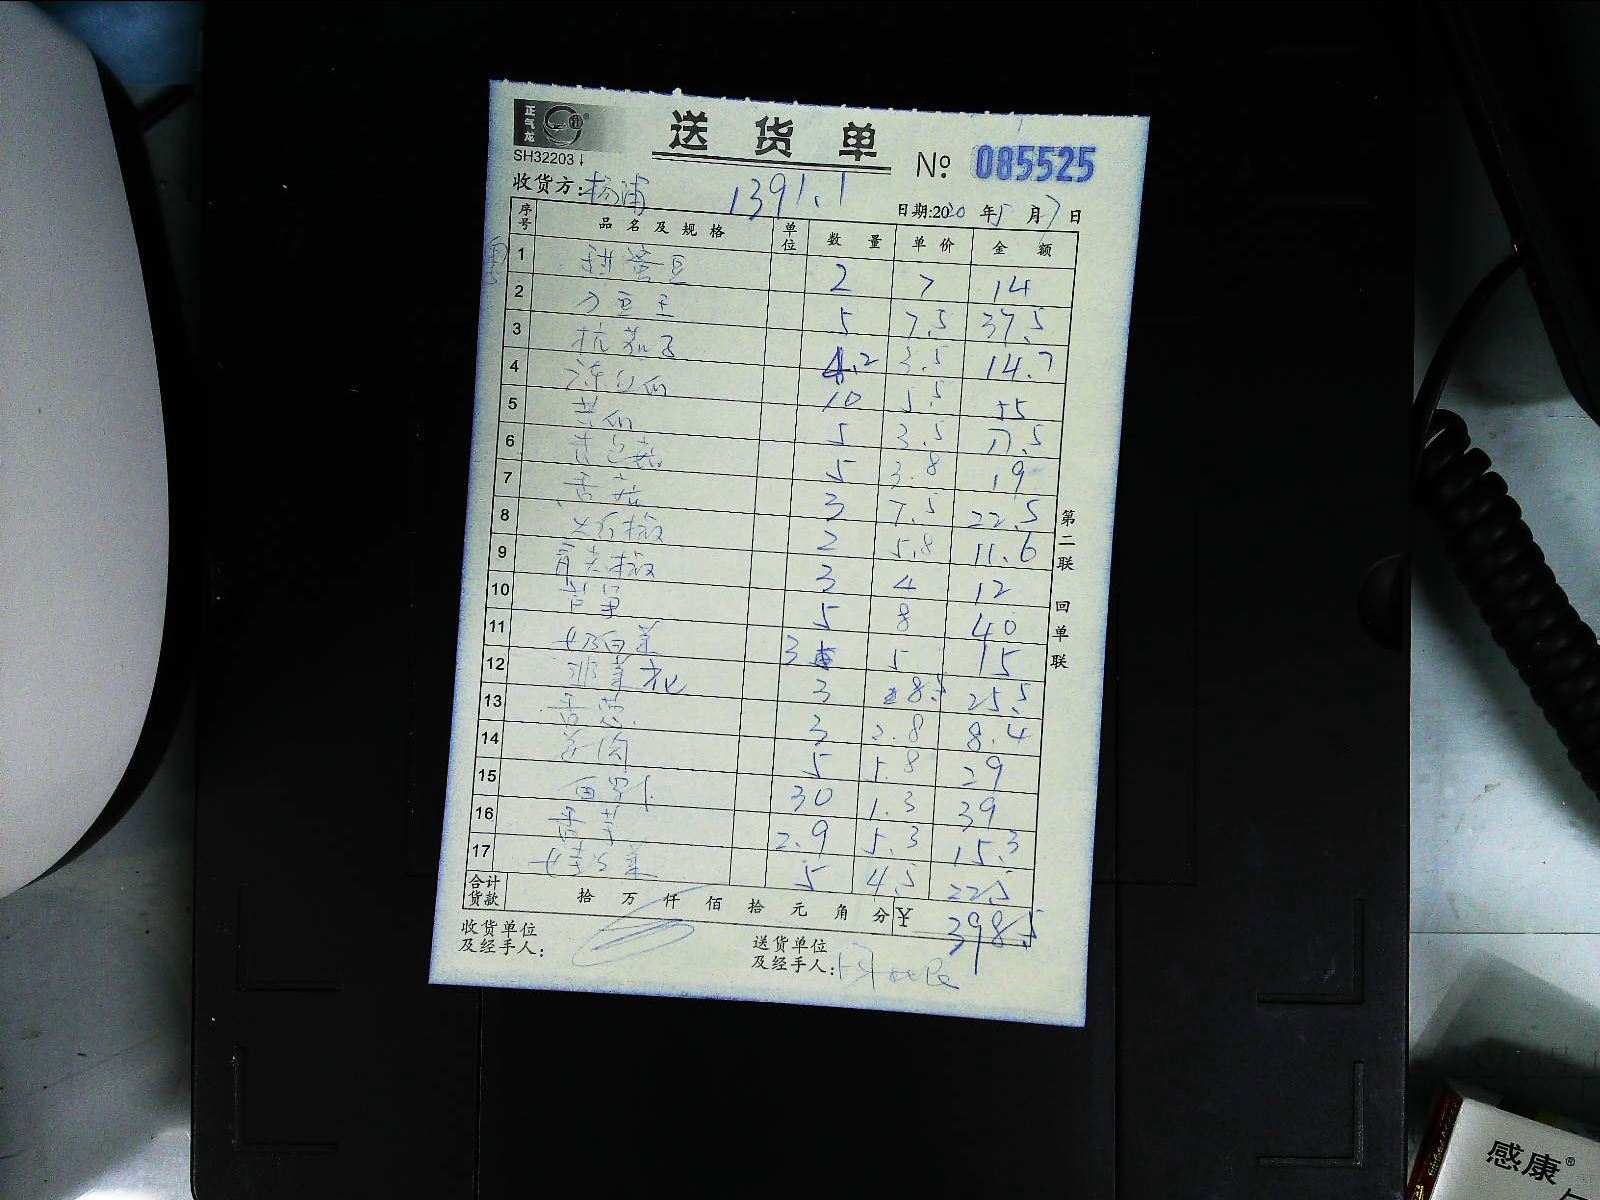 正气龙
SH32203↓
送货单
№ 085525
收货方: 杨浦 1391.1
日期:2020年5月7日
序号 品名及规格 单位 数量 单价 金额
1 甜蜜豆 2 7 14
2 刀豆王 5 7.5 37.5
3 杭茄子 4.2 3.5 14.7
4 10 5.5 55
5 5 3.5 17.5
6 5 3.8 19
7 香菇 3 7.5 22.5
8 2 5.8 11.6
9 3 4 12
10 5 8 40
11 3 5 15
12 韭菜花 3 8.5 25.5
13 香葱 3 2.8 8.4
14 5 5.8 29
15 白罗卜 30 1.3 39
16 香芋 2.9 5.3 15.3
17 5 4.5 22.5
合计货款 拾 万 仟 佰 拾 元 角 分 ¥ 398.5
收货单位及经手人:
送货单位及经手人:
第二联 回单联
感康®